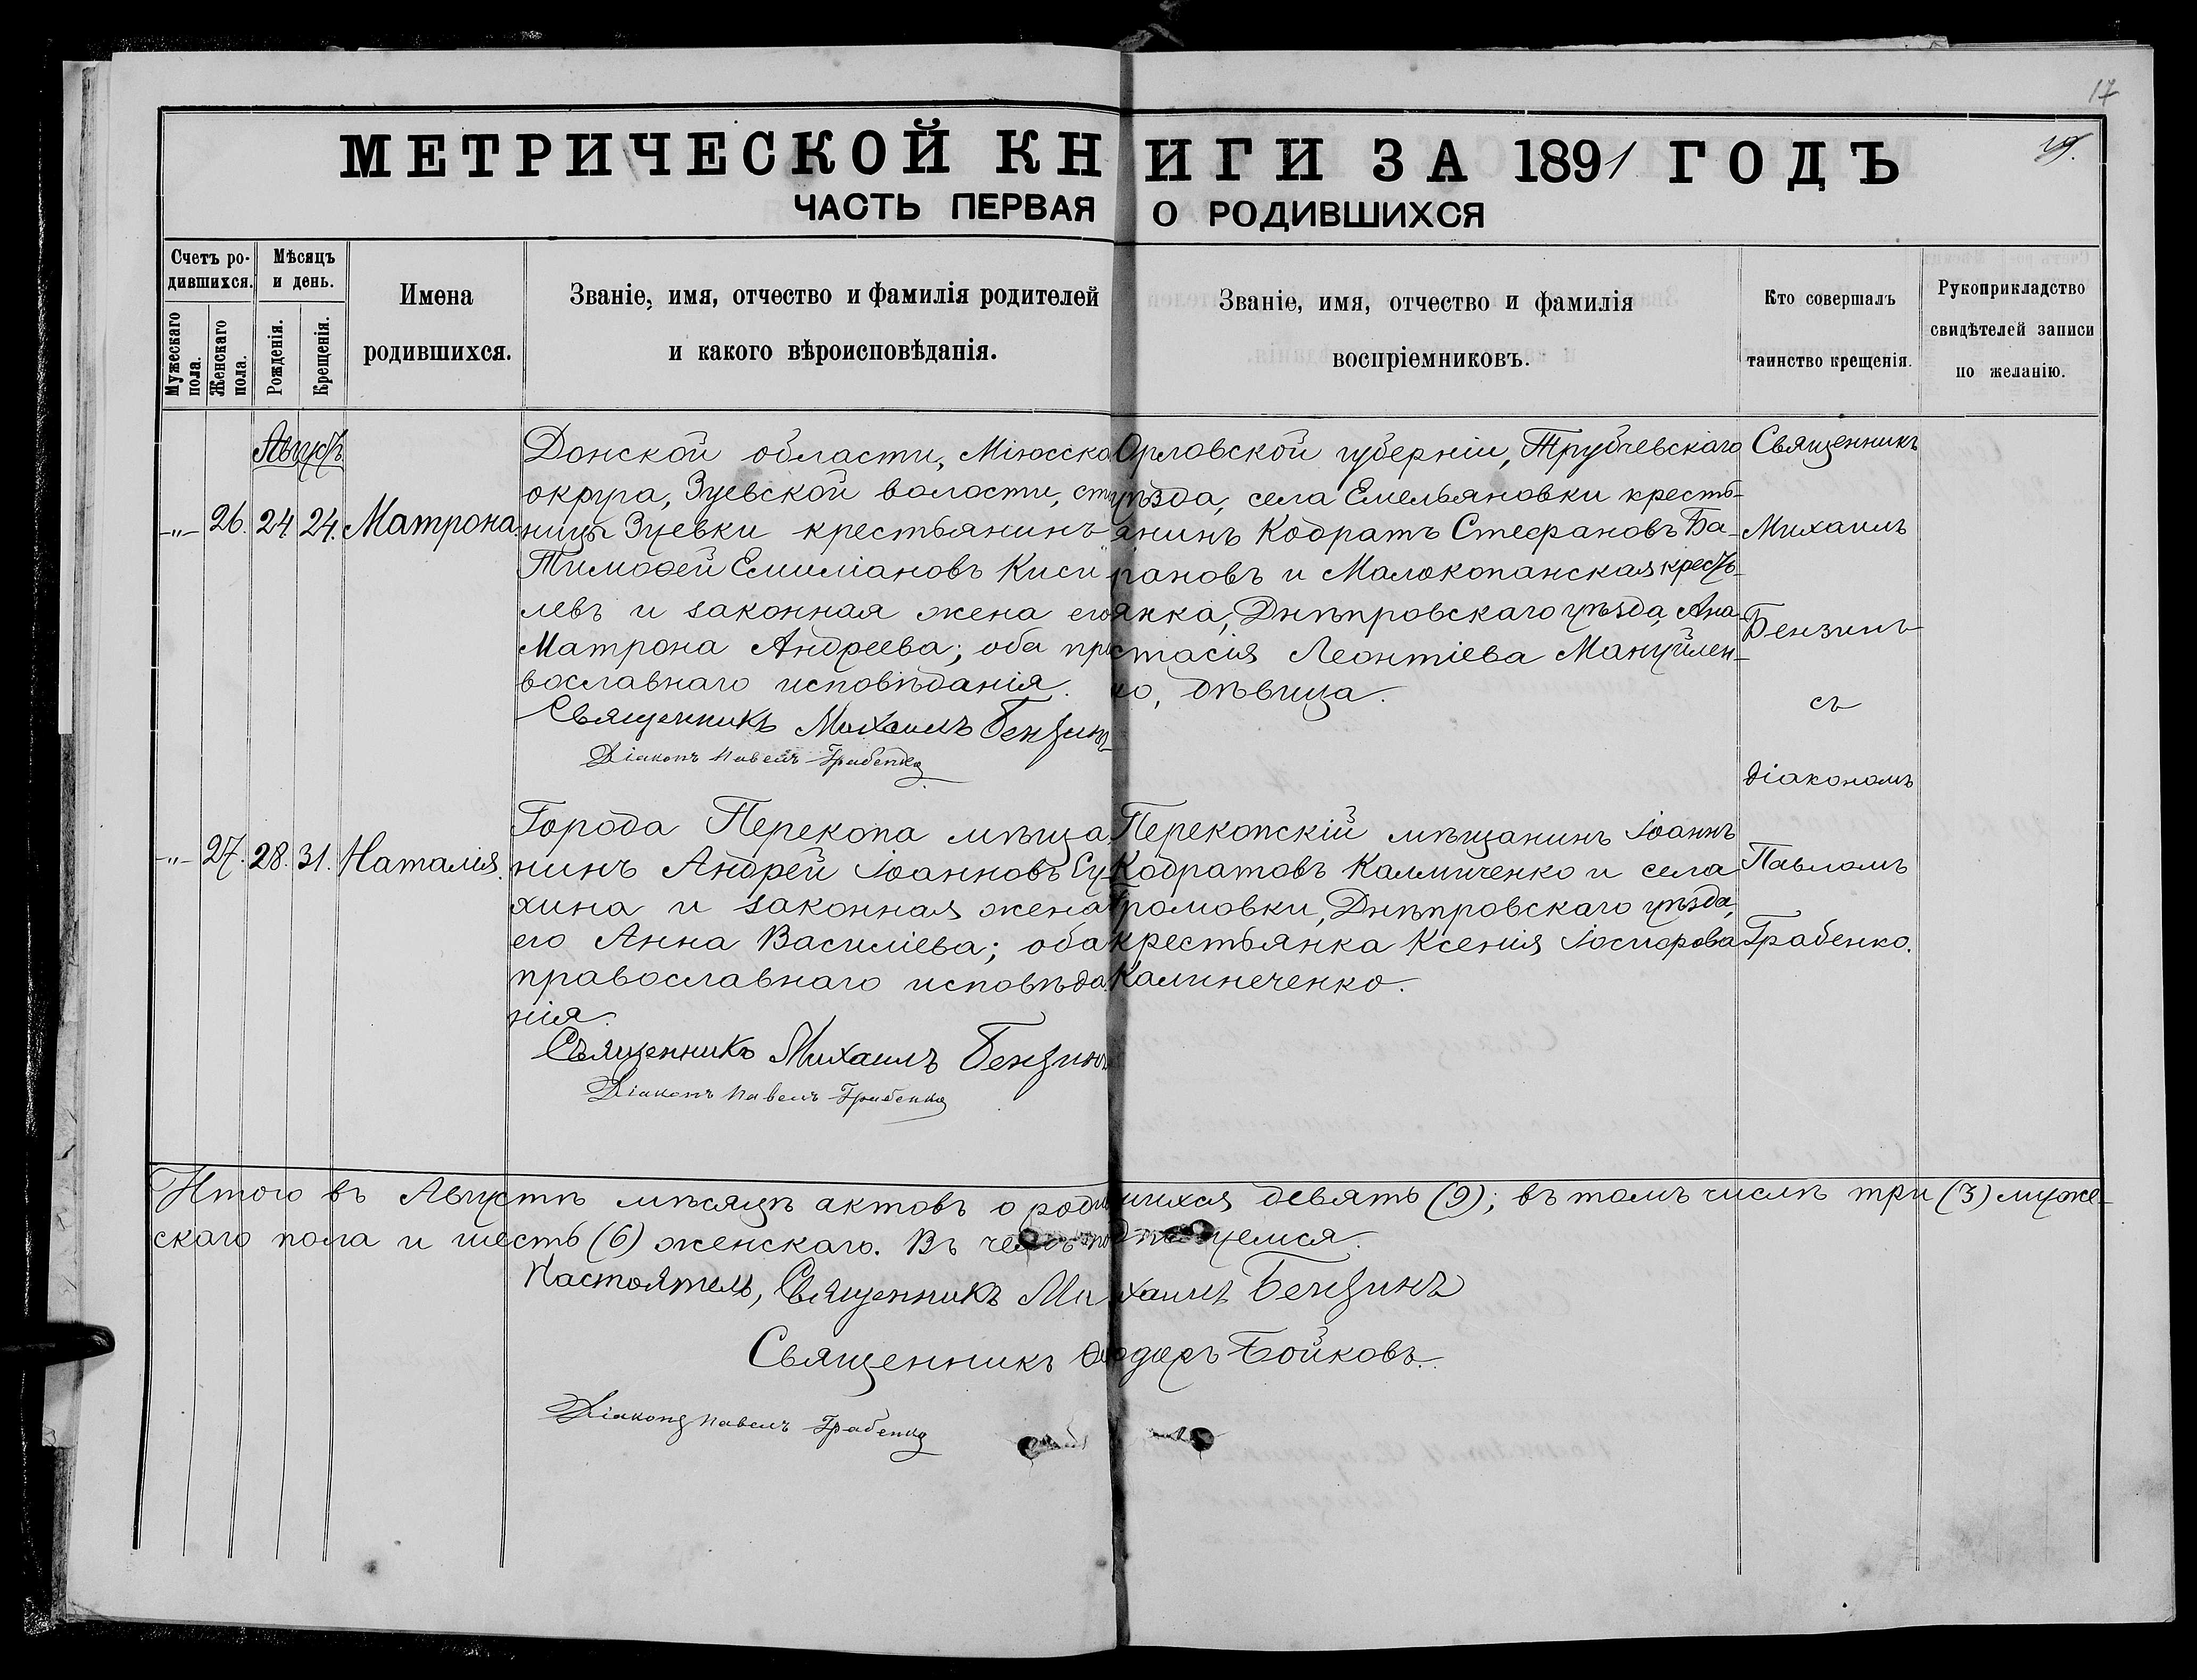 17
19.
МЕТРИЧЕСКОЙ КНИГИ ЗА 1891 ГОДЪ
ЧАСТЬ ПЕРВАЯ О РОДИВШИХСЯ
Счетъ ро-
дившихся.
Мужескаго пола.
Женскаго пола.
Мѣсяцъ
и день.
Рожденія.
Крещенія.
Имена
родившихся.
Званіе, имя, отчество и фамилія родителей
и какого вѣроисповѣданія.
Званіе, имя, отчество и фамилія
воспріемниковъ.
Кто совершалъ
таинство крещенія.
Рукоприкладство
свидѣтелей записи
по желанію.
Августъ
-"- 26. 24 24. Матрона.
Донской области, Міюсска
округа, Зуевской волости, ст
ницы Зуевки крестьянинъ
Тимофей Емиліановъ Кисі
левъ и законная жена его
Матрона Андреева; оба пра
вославнаго исповѣданія.
Священникъ Михаилъ Бензинъ
Діаконъ Павелъ Грабенко
Орловской губерніи, Трубчевскаго
уѣзда, села Емельяновки кресть-
янинъ Кодратъ Стефановъ Ба-
рановъ и Малокопанская кресть-
янка, Днѣпровскаго уѣзда, Ана-
стасія Леонтіева Мануйлен-
ко, дѣвица.
Священникъ
Михаилъ
Бензинъ
съ
діакономъ
Павломъ
Грабенко.
-"- 27. 28. 31. Наталія.
Города Перекопа мѣща
нинъ Андрей Іоанновъ Су
хина и законная жена
его Анна Василіева; оба
православнаго исповѣда
нія.
Священникъ Михаилъ Бензинъ
Діаконъ Павелъ Грабенко
Перекопскій мѣщанинъ Іоаннъ
Кодратовъ Калмиченко и села
Громовки, Днѣпровскаго уѣзда,
крестьянка Ксенія Іосифова
Калиниченко.
Итого въ Августѣ мѣсяцѣ актовъ о родившихся девять (9); въ томъ числѣ три (3) муже-
скаго пола и шесть (6) женскаго. Въ чемъ подписуемся.
Настоятель, Священникъ Михаилъ Бензинъ
Священникъ Ѳеодоръ Бойковъ.
Діаконъ Павелъ Грабенко